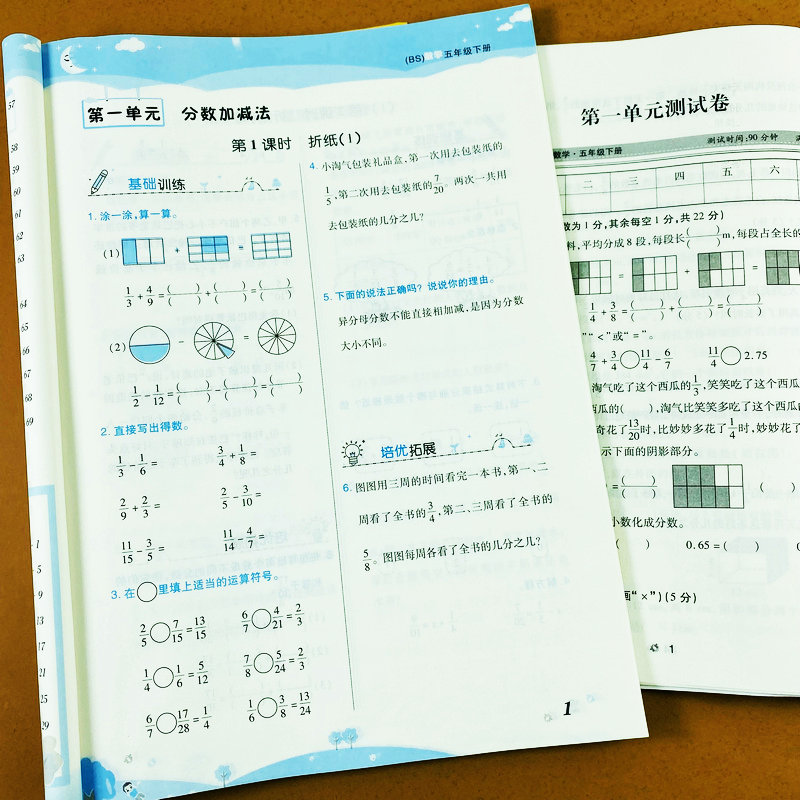 (BS)数学 五年级下册
第一单元 分数加减法
第1课时 折纸(1)
基础训练
1. 涂一涂,算一算。
(1) + =
1/3 + 4/9 = ( )/( ) + ( )/( ) = ( )/( )
(2) - =
1/2 - 1/12 = ( )/( ) - ( )/( ) = ( )/( )
2. 直接写出得数。
1/3 - 1/6 = 3/4 + 1/8 =
2/9 + 2/3 = 2/5 - 3/10 =
11/15 - 3/5 = 11/14 - 4/7 =
3. 在○里填上适当的运算符号。
2/5 ○ 7/15 = 13/15 6/7 ○ 4/21 = 2/3
1/4 ○ 1/6 = 5/12 7/8 ○ 5/24 = 2/3
6/7 ○ 17/28 = 1/4 1/6 ○ 3/8 = 13/24
4. 小淘气包装礼品盒,第一次用去包装纸的
1/5,第二次用去包装纸的7/20。两次一共用
去包装纸的几分之几?
5. 下面的说法正确吗?说说你的理由。
异分母分数不能直接相加减,是因为分数
大小不同。
培优拓展
6. 图图用三周的时间看完一本书,第一、二
周看了全书的3/4,第二、三周看了全书的
5/8。图图每周各看了全书的几分之几?
1
第一单元测试卷
数学·五年级下册 测试时间:90分钟
二 三 四 五 六
数为1分,其余每空1分,共22分)
料,平均分成8段,每段长( )/( )m,每段占全长的
= + =
1/4 + 3/8 = ( )/( ) + ( )/( ) = ( )/( )
“<”或“=”。
4/7 + 3/4 ○ 11/4 - 6/7 11/4 ○ 2.75
淘气吃了这个西瓜的1/3,笑笑吃了这个西瓜
西瓜的( ),淘气比笑笑多吃了这个西瓜的
奇花了13/20时,比妙妙多花了1/4时,妙妙花了
示下面的阴影部分。
= ( )/( ) ( )
小数化成分数。
( ) 0.65=( )
画“×”)(5分)
1
57
58
59
60
61
62
63
64
65
66
67
68
69
1
5
9
13
17
21
25
29